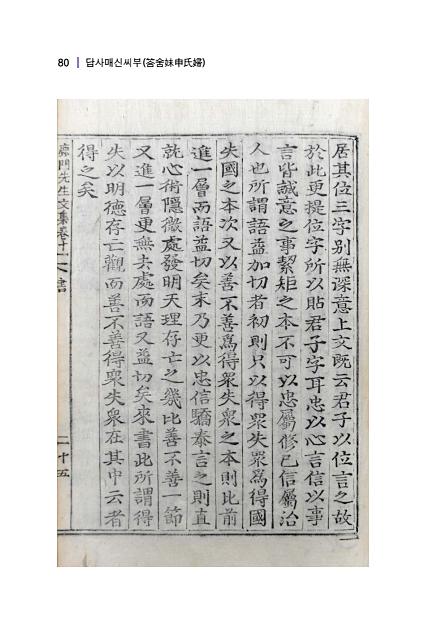 80 | 답사매신씨부(答舍妹申氏婦)
居其位三字別無深意上文旣云君子以位言之故
於此更提位字所以貼君子字耳忠以心言信以事
言皆誠意之事絜矩之本不可以忠屬修己信屬治
人也所謂語益加切者初則只以得衆失衆爲得國
失國之本次又以善不善爲得衆失衆之本則比前
進一層而語益切矣末乃更以忠信驕泰言之則直
就心術隱微處發明天理存亡之幾比善不善一節
又進一層更無去處而語又益切矣來書此所謂得
失以明德存亡觀而善不善得衆失衆在其中云者
得之矣
門先生文集卷十一 書 二十五